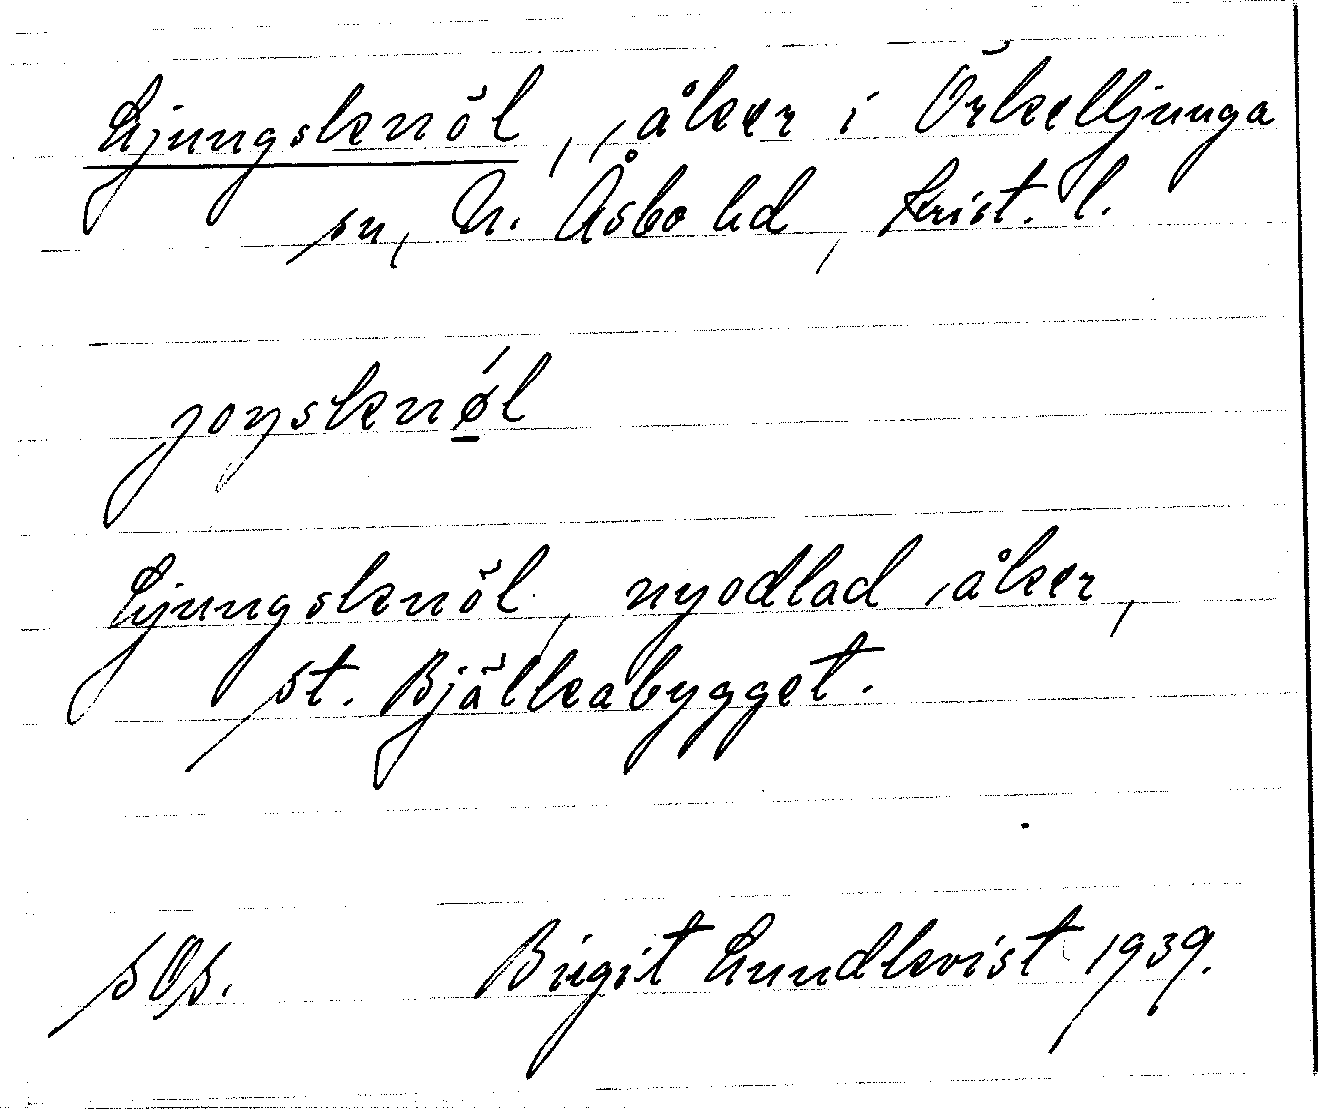 Ljungsknöl, åker i Örkelljunga
sn, N. Åsbo hd, Krist. l.
joŋsknǿ̱l
Ljungsknöl, nyodlad åker,
St. Bjälkabygget.
sOs. Birgit Lundkvist 1939.